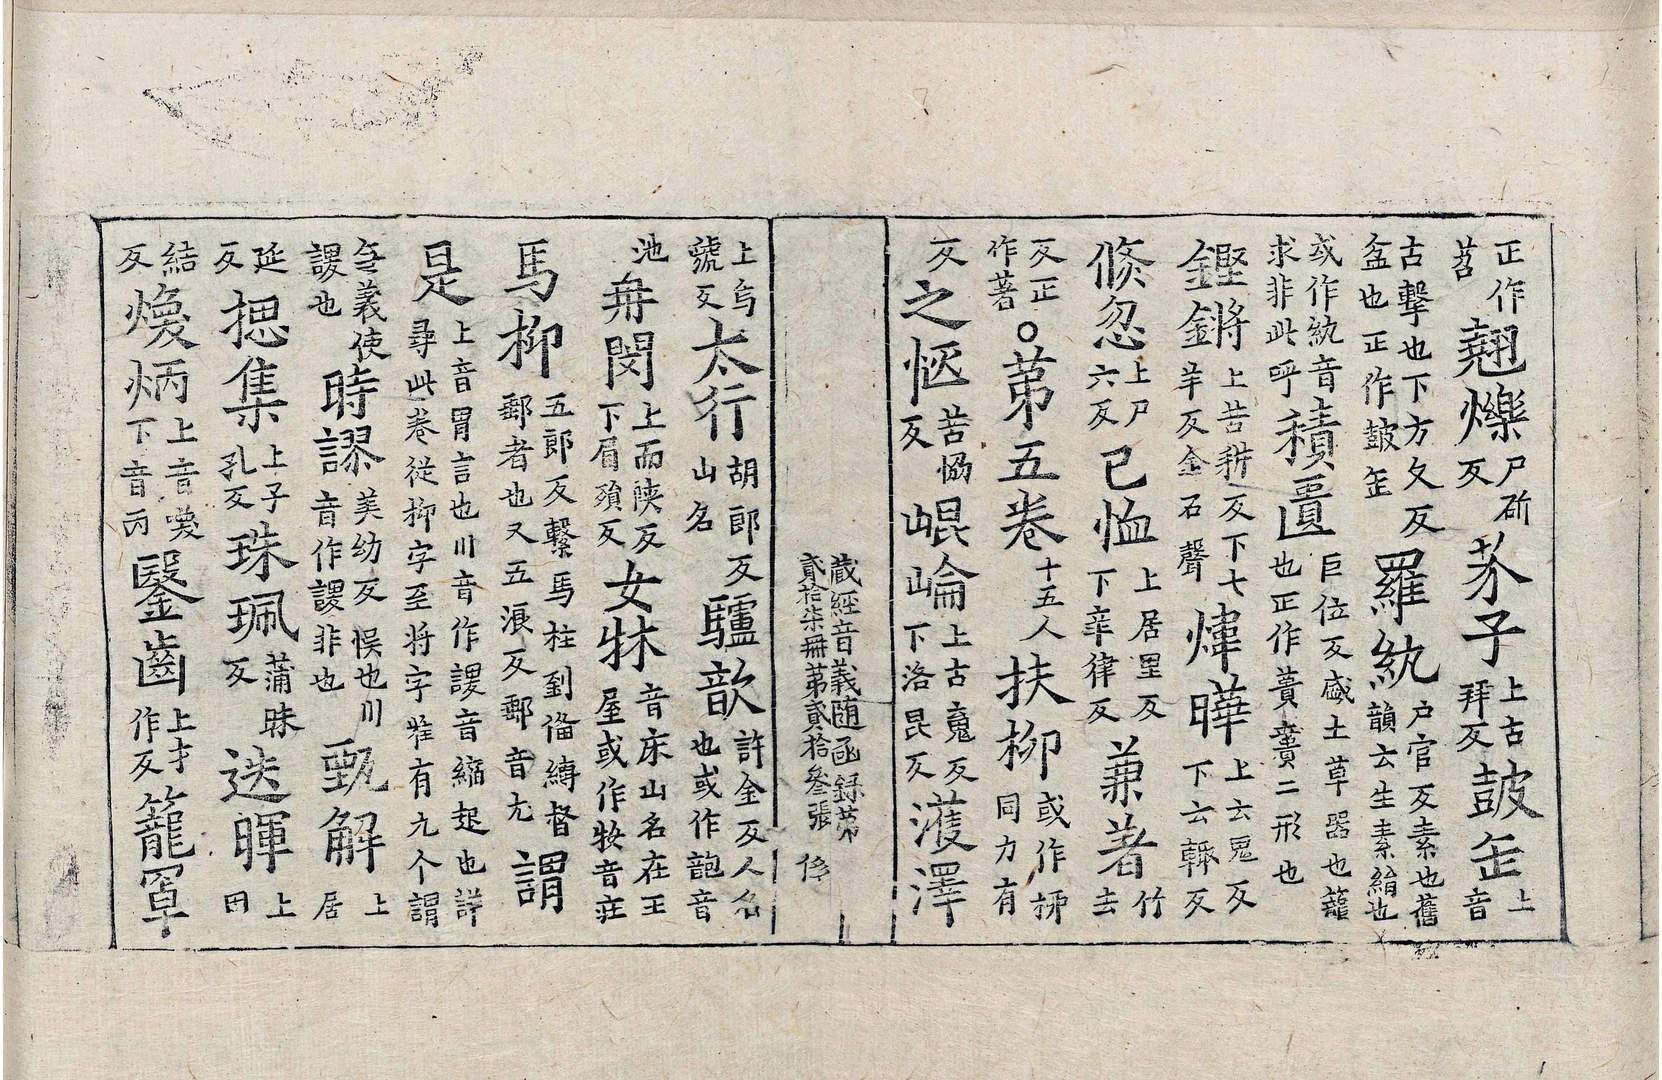 正作苕翹爍尸斫反芥子上古拜反皷缶上音
古擊也下方久反盆也正作皷缶羅紈户官反素也舊韻云生素絹也
或作紈音求非此呼積匱巨位反盛土草器也籠也正作蕢簣二形也
鏗鏘上苦耕反下七羊反金石聲煒曄上云鬼反下云輒反
倏忽上尸六反已恤上居里反下辛律反兼著竹去
反正作著○苐五卷十五人扶柳或作桞同力有
反之恹苦恊反崐崘上古䰟反下洛昆反濩澤
藏經音義随函録苐貳拾柒冊苐貳拾叄張 俢
上烏虢反太行胡郎反山名驢歆許金反人名也或作䪨音
池冉閔上而陝反下眉殞反女牀音床山名在王屋或作妝音莊
馬枊五郎反繫馬柱到俻縛督郵者也又五浪反郵音尤謂
是上音胃言也川音作謖音縮起也詳尋此卷從枊字至将字唯有九个謂
無義使謖也時謬美幼反悮也川音作謖非也甄解上居
延反揔集上子孔反珠珮蒲昧反迭暉上田
結反煥炳上音喚下音丙鑿齒上才作反籠罩